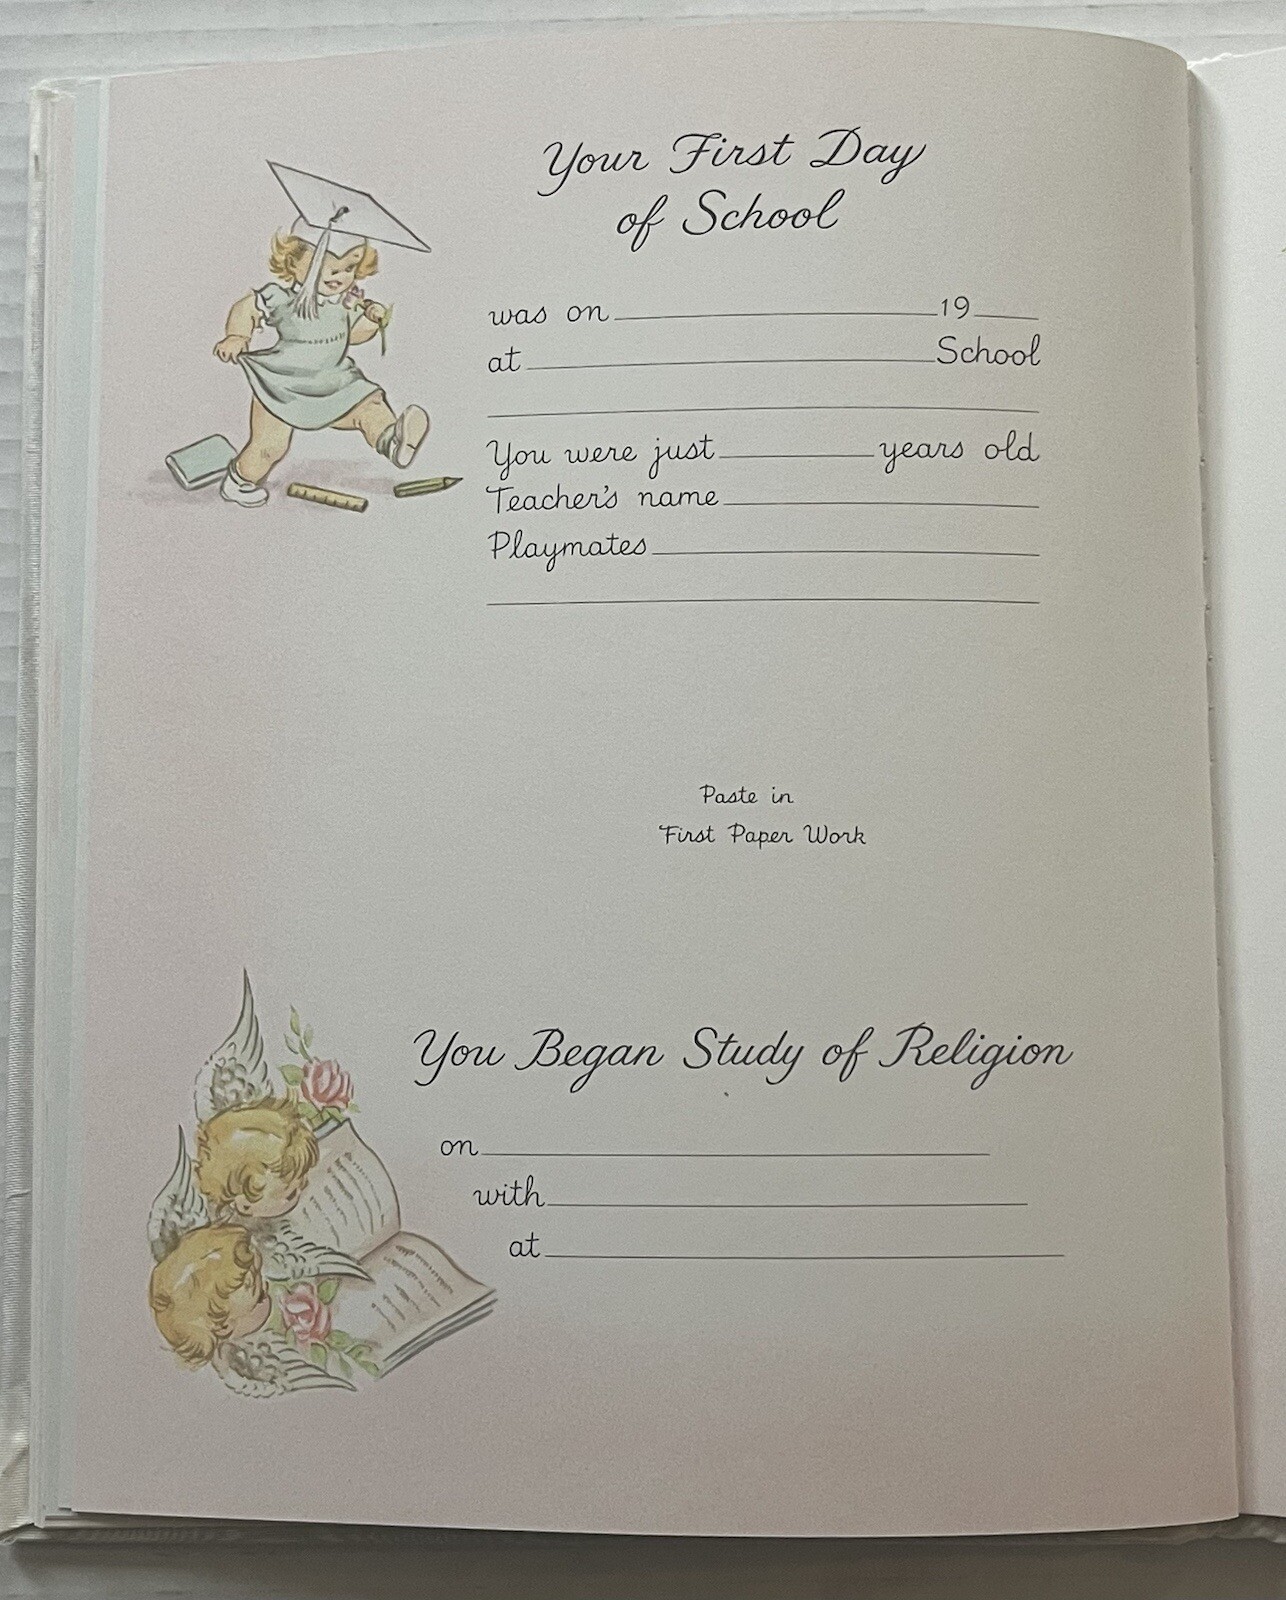 Your First Day
of School
was on 19
at School
You were just years old
Teacher's name
Playmates
Paste in
First Paper Work
You Began Study of Religion
on
with
at